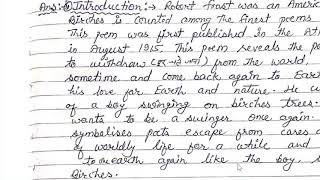 Ans:- ① Introduction :- Robert Frost was an America
Birches is counted among the finest poems
This poem was first published in the Atl
in August 1915. This poem reveals the po
to withdraw ( ) from the world,
sometime and come back again to Earth
his love for Earth and nature. He w
of a boy swinging on birches trees.
wants to be a swinger once again.
symbolises pots escape from cares a
of worldly life for a while and
to earth again like the boy, s
Birches.